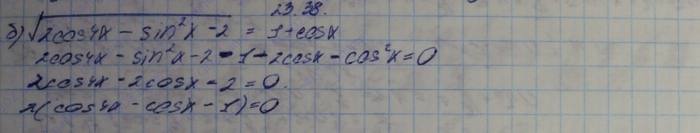 23.38.
б) √(2cos4x - sin²x - 2) = 1 + cosx
2cos4x - sin²x - 2 - 1 - 2cosx - cos²x = 0
2cos4x - 2cosx - 2 = 0.
2(cos4x - cosx - 1) = 0